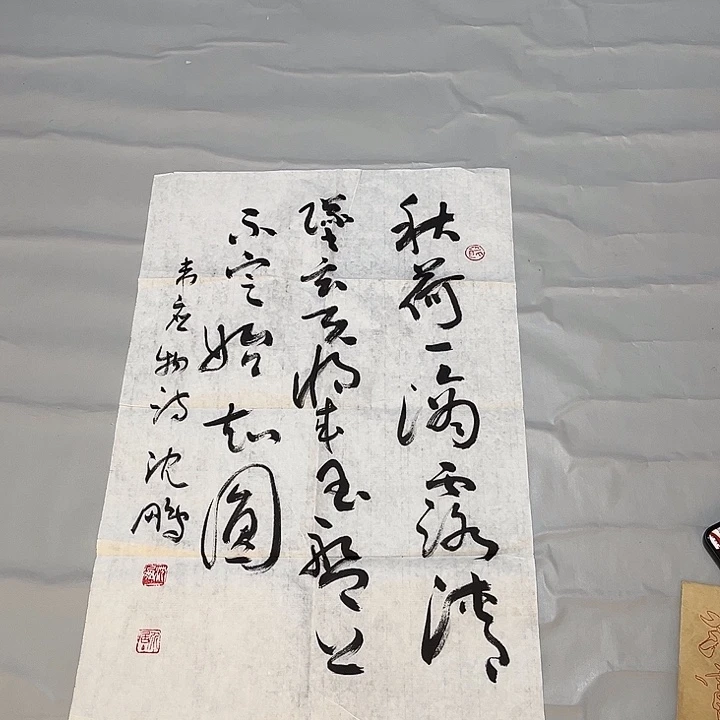 秋荷一滴露清
墜玄天将来玉盘上
不定始知圓
韦应物诗 沈鹏